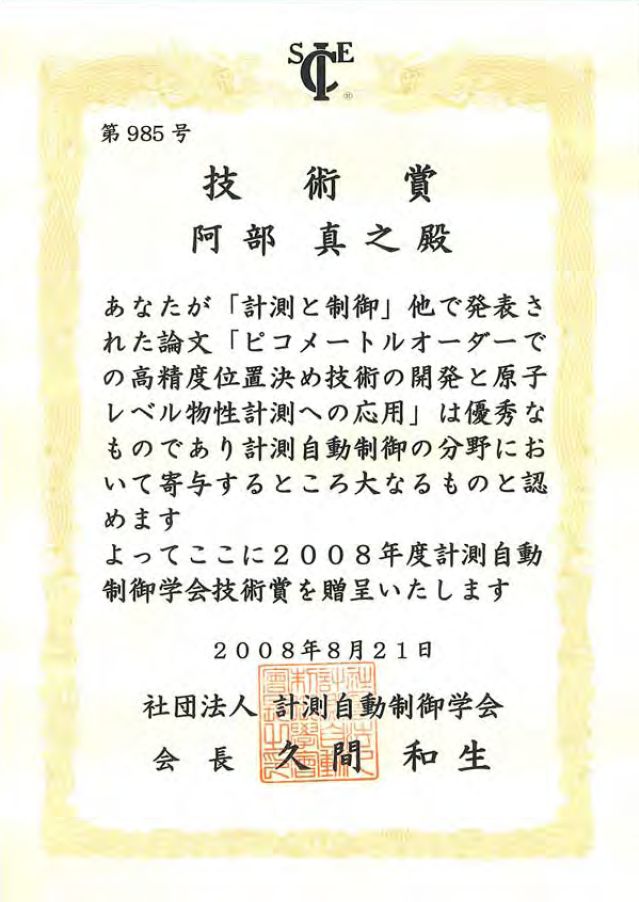 SICE
®
第985号
技術賞
阿部 真之殿
あなたが「計測と制御」他で発表さ
れた論文「ピコメートルオーダーで
の高精度位置決め技術の開発と原子
レベル物性計測への応用」は優秀な
ものであり計測自動制御の分野にお
いて寄与するところ大なるものと認
めます
よってここに2008年度計測自動
制御学会技術賞を贈呈いたします
2008年8月21日
社団法人 計測自動制御学会
会長 久間 和生